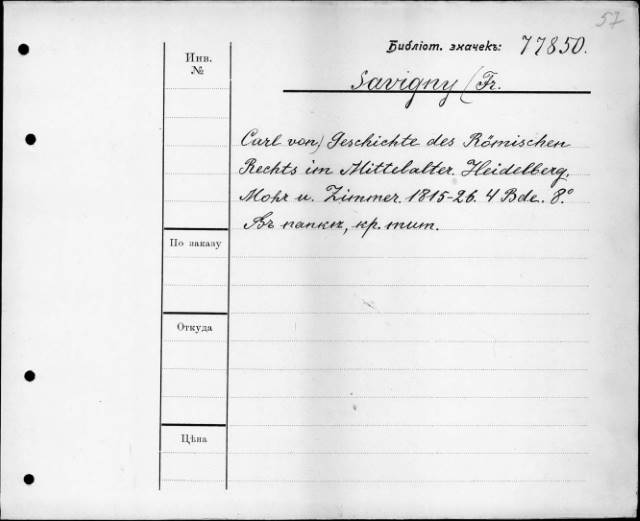 57
Библіот. значекъ: 77850.
Инв.
№
Savigny (Fr.
Carl von) Geschichte des Römischen
Rechts im Mittelalter. Heidelberg,
Mohr u. Zimmer. 1815-26. 4 Bde. 8.°
Въ папкѣ, кр. тит.
По заказу
Откуда
Цѣна